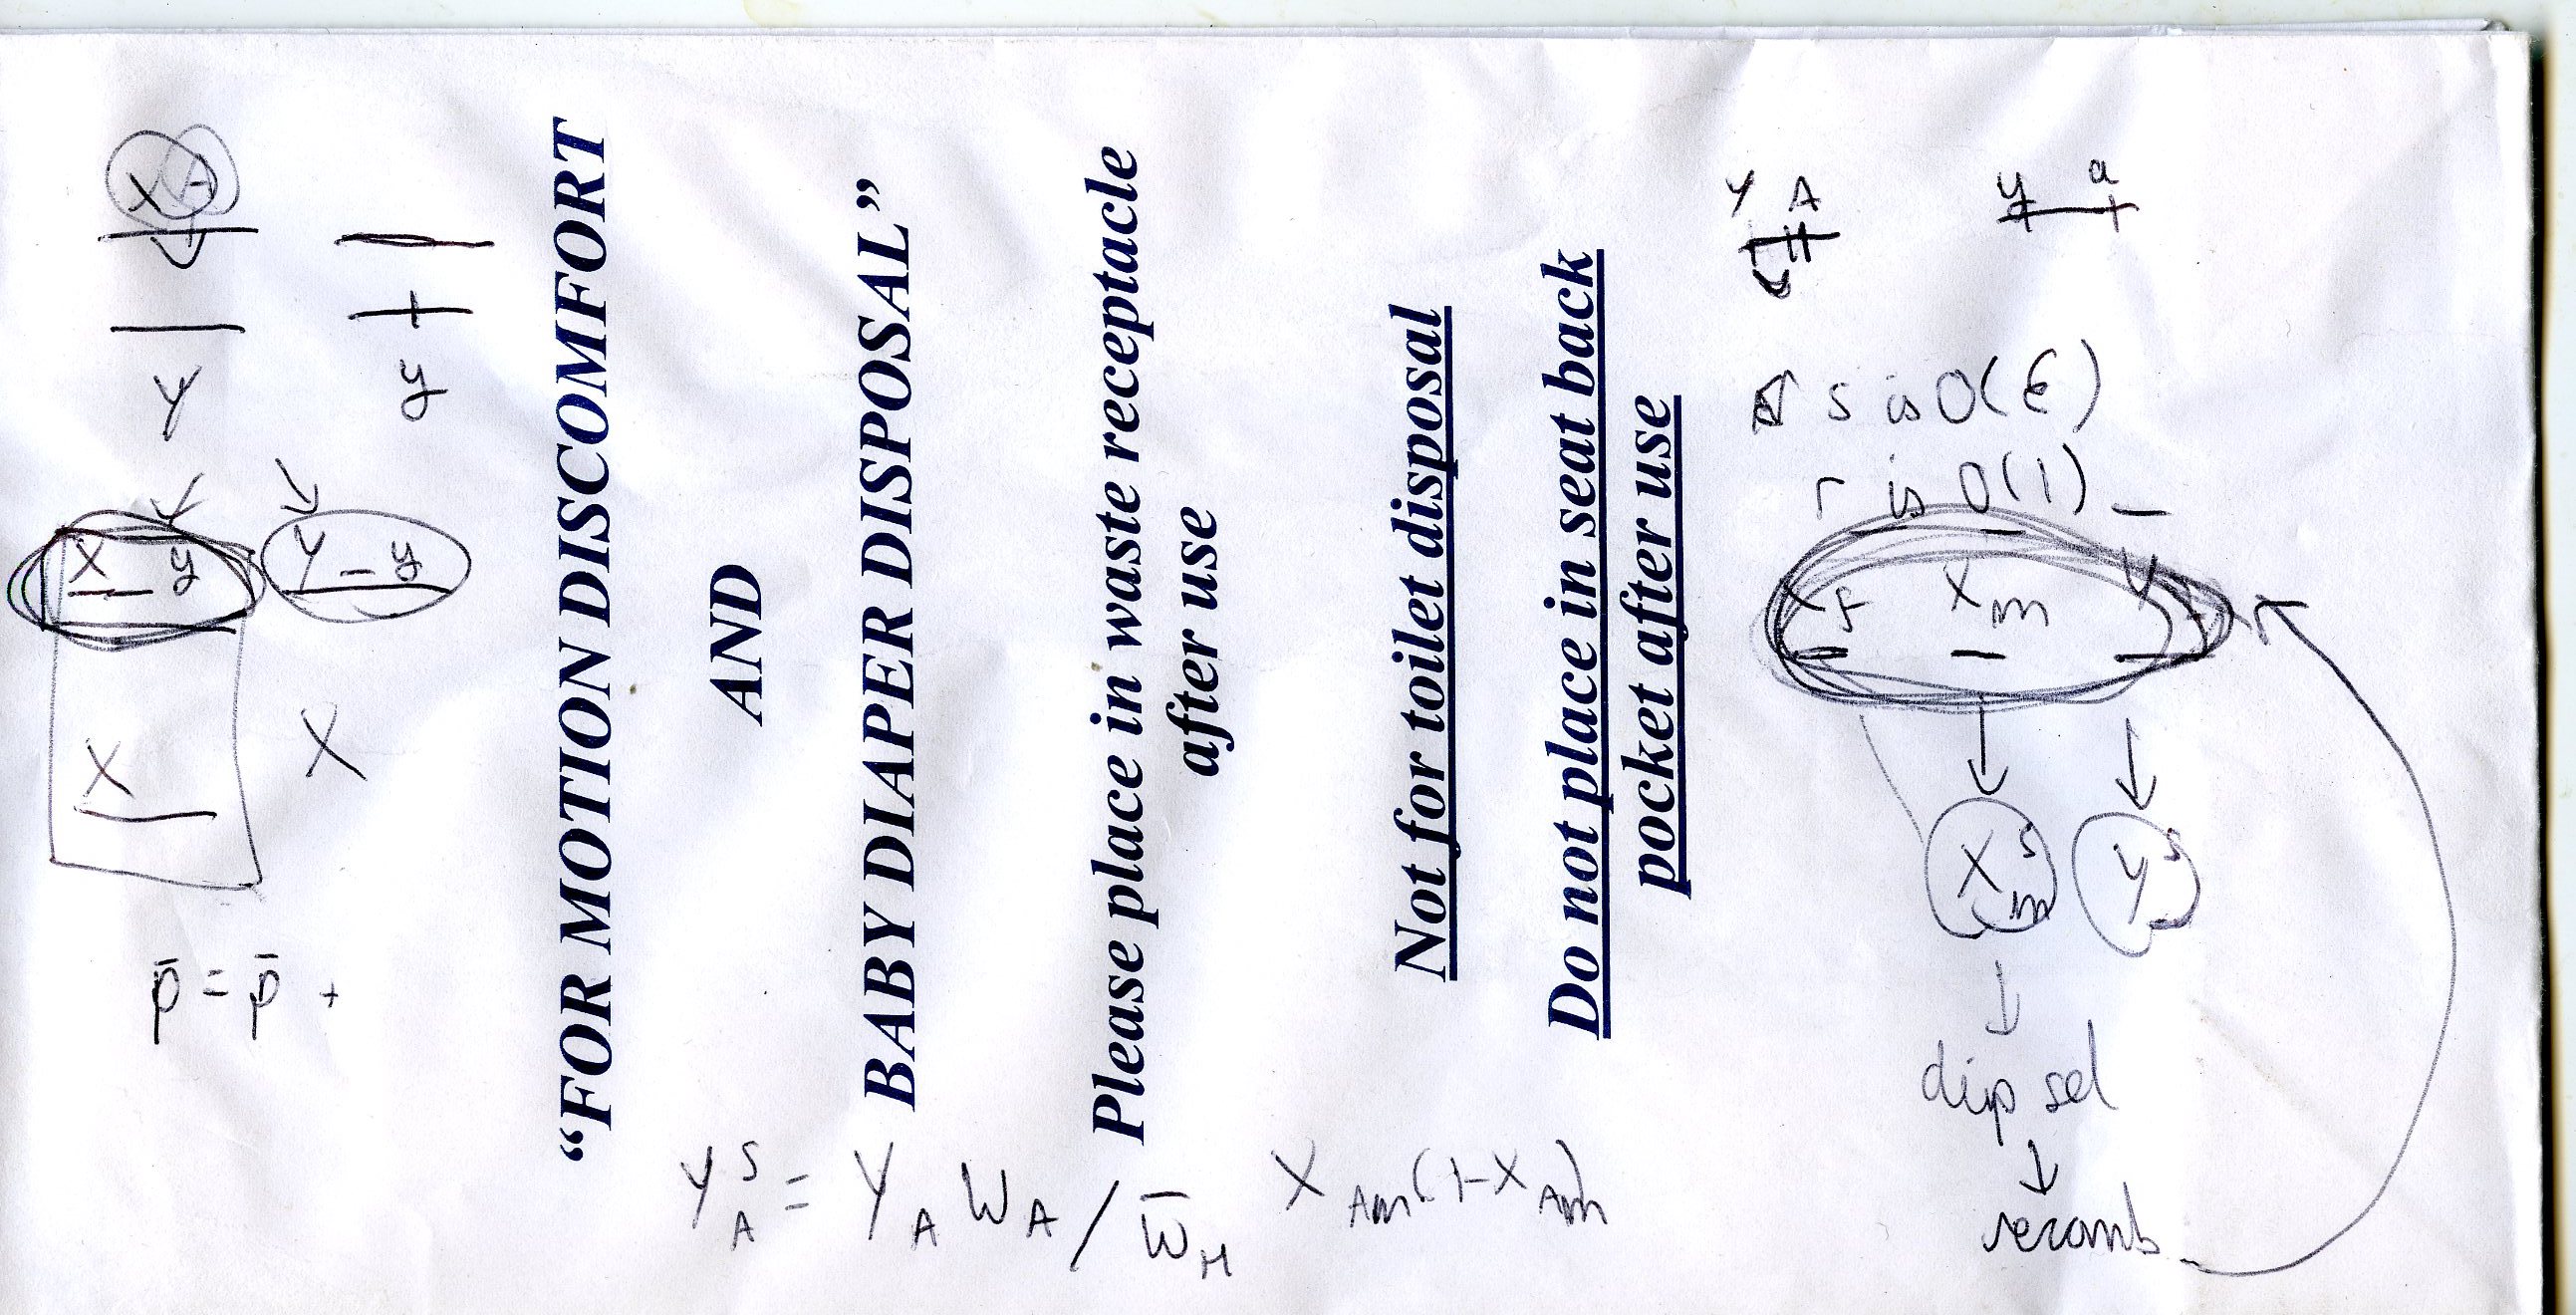 “FOR MOTION DISCOMFORT
AND
BABY DIAPER DISPOSAL”
Please place in waste receptacle
after use
Not for toilet disposal
Do not place in seat back
pocket after use
X A
Y
y
X y
Y y
X
X
p̄ = p̄ +
Y A
y a
s is O(ε)
r is O(1)
X_f X_m Y
X_m^s Y^s
dip sel
recomb
Y_A^s = Y_A W_A / W̄_M
X_Am (1-X_Am)